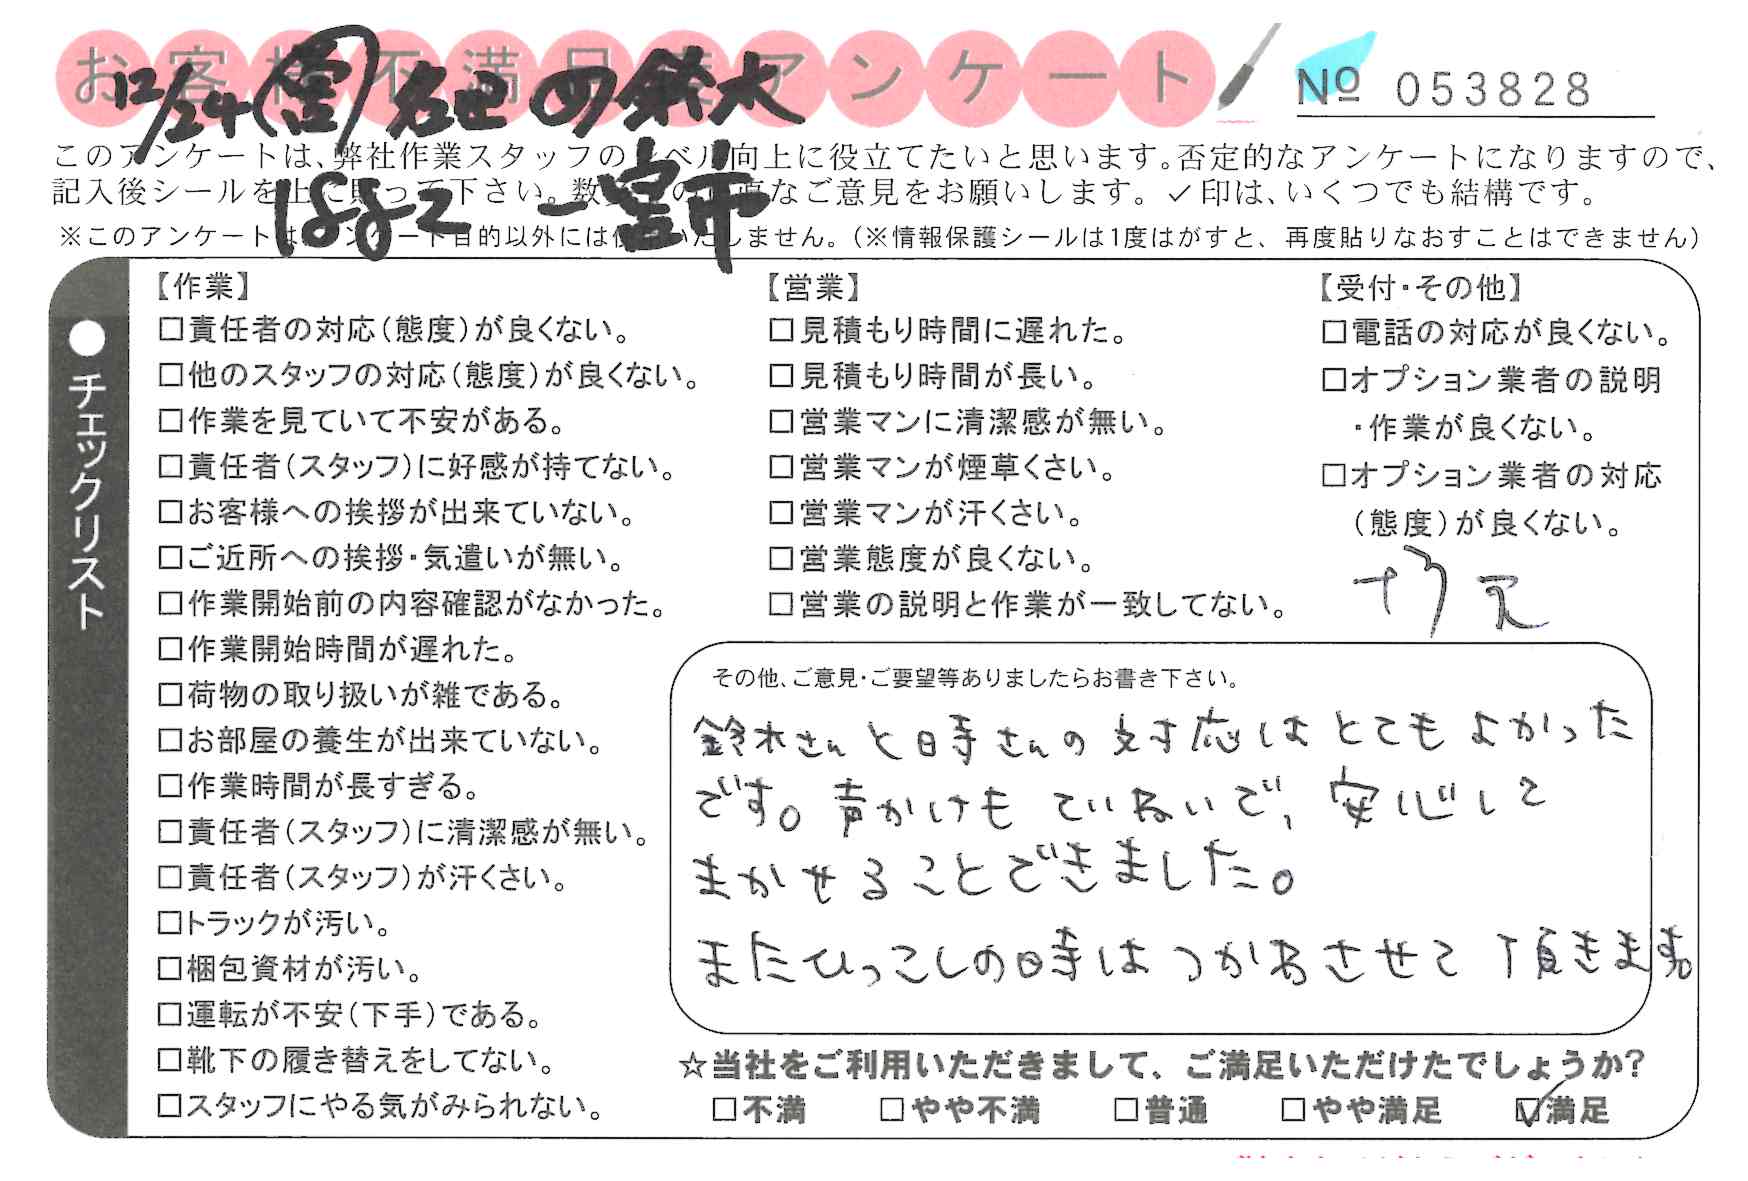 お客様不満足度アンケート
№ 053828
12/24
このアンケートは、弊社作業スタッフのレベル向上に役立てたいと思います。否定的なアンケートになりますので、
記入後シールを上に貼って下さい。数多くの正直なご意見をお願いします。✓印は、いくつでも結構です。
一宮市
※このアンケートはアンケート目的以外には使用いたしません。（※情報保護シールは1度はがすと、再度貼りなおすことはできません）
●チェックリスト
【作業】
□責任者の対応（態度）が良くない。
□他のスタッフの対応（態度）が良くない。
□作業を見ていて不安がある。
□責任者（スタッフ）に好感が持てない。
□お客様への挨拶が出来ていない。
□ご近所への挨拶・気遣いが無い。
□作業開始前の内容確認がなかった。
□作業開始時間が遅れた。
□荷物の取り扱いが雑である。
□お部屋の養生が出来ていない。
□作業時間が長すぎる。
□責任者（スタッフ）に清潔感が無い。
□責任者（スタッフ）が汗くさい。
□トラックが汚い。
□梱包資材が汚い。
□運転が不安（下手）である。
□靴下の履き替えをしてない。
□スタッフにやる気がみられない。
【営業】
□見積もり時間に遅れた。
□見積もり時間が長い。
□営業マンに清潔感が無い。
□営業マンが煙草くさい。
□営業マンが汗くさい。
□営業態度が良くない。
□営業の説明と作業が一致してない。
【受付・その他】
□電話の対応が良くない。
□オプション業者の説明
・作業が良くない。
□オプション業者の対応
（態度）が良くない。
その他、ご意見・ご要望等ありましたらお書き下さい。
鈴木さんと時さんの対応はとてもよかった
です。声かけもていねいで、安心して
まかせることできました。
またひっこしの時はつかわさせて頂きます。
☆当社をご利用いただきまして、ご満足いただけたでしょうか?
□不満 □やや不満 □普通 □やや満足 ☑満足